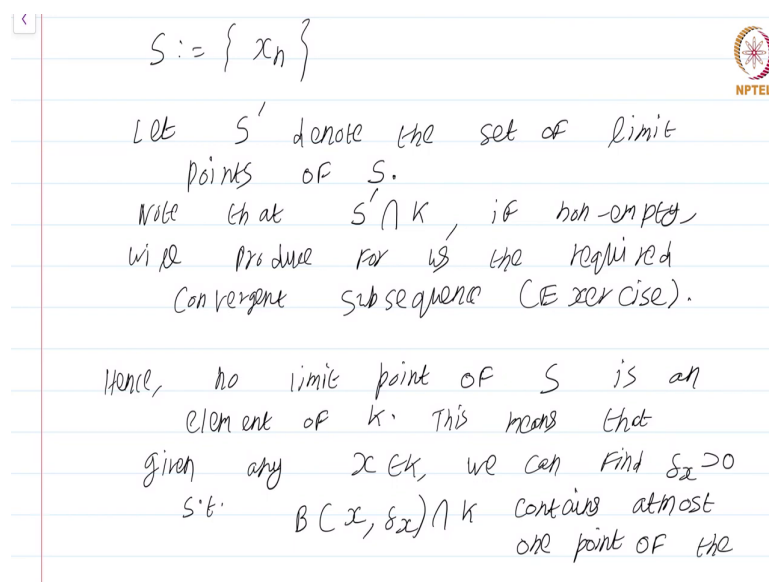 S := { xₙ }
NPTEL
Let S' denote the set of limit
points of S.
Note that S' ∩ K, if non-empty,
will produce for us the required
convergent subsequence (Exercise).
Hence, no limit point of S is an
element of K. This means that
given any x ∈ K, we can find δₓ > 0
s.t. B(x, δₓ) ∩ K contains atmost
one point of the